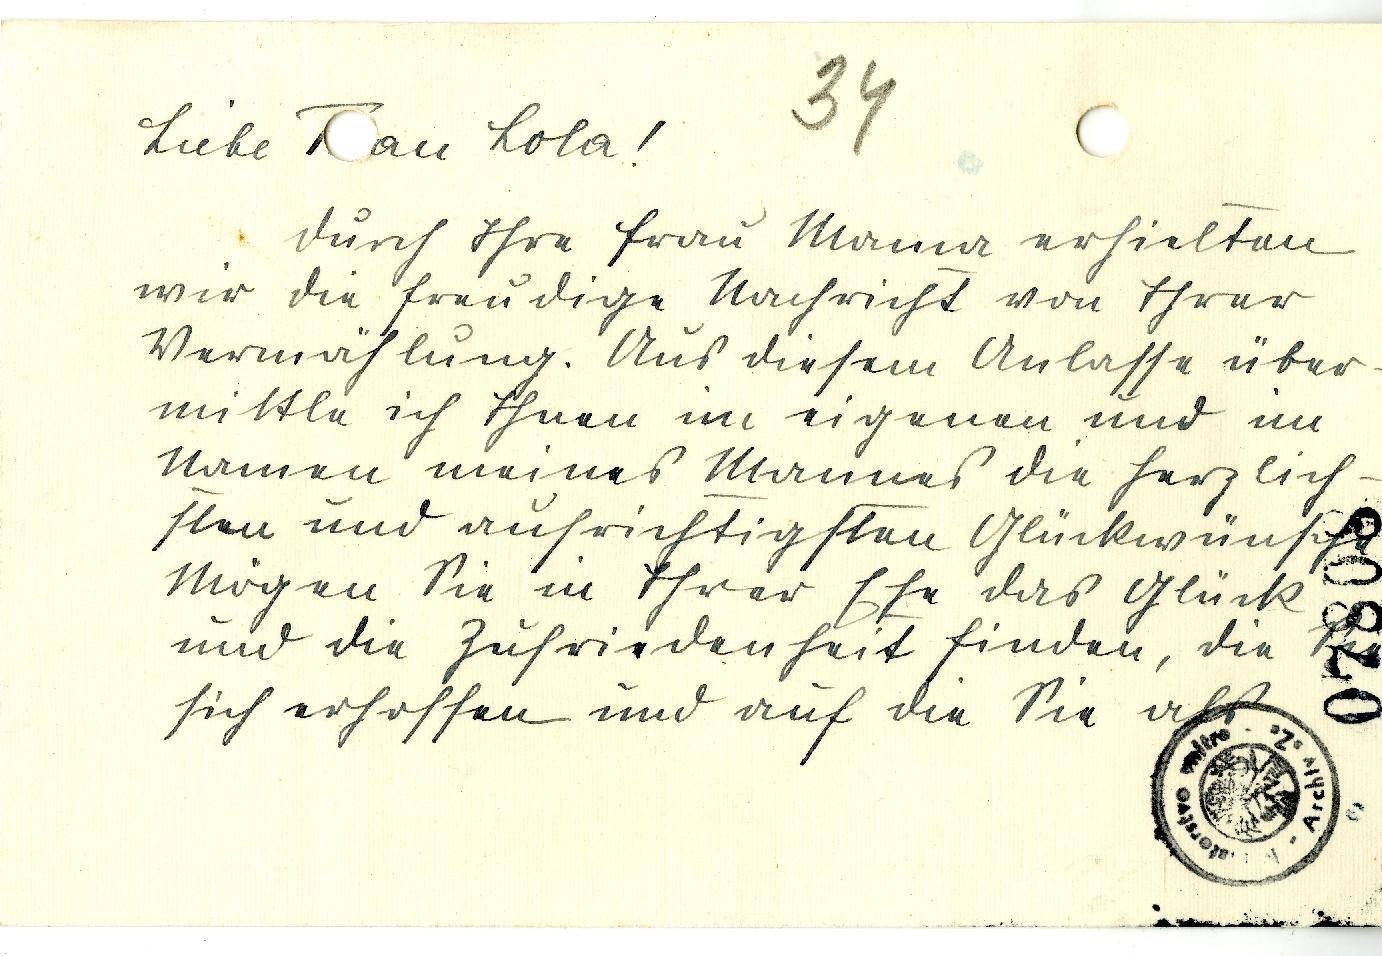 34
Liebe Frau Lola!
Durch Ihre Frau Mama erhielten
wir die freudige Nachricht von Ihrer
Vermählung. Aus diesem Anlasse über-
mittle ich Ihnen im eigenen und im
Namen meines Mannes die herzlich-
sten und aufrichtigsten Glückwünsche
Mögen Sie in Ihrer Ehe das Glück
und die Zufriedenheit finden, die Sie
sich erhoffen und auf die Sie als
07808
vnitra · Archiv "Z" ·